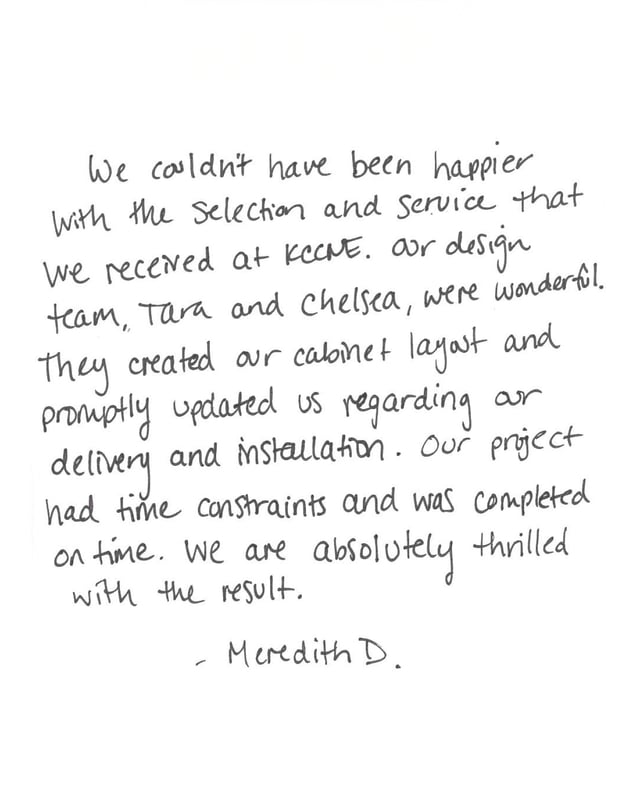 We couldn't have been happier
with the selection and service that
we received at KCCNE. Our design
team, Tara and Chelsea, were wonderful.
They created our cabinet layout and
promptly updated us regarding our
delivery and installation. Our project
had time constraints and was completed
on time. We are absolutely thrilled
with the result.
- Meredith D.